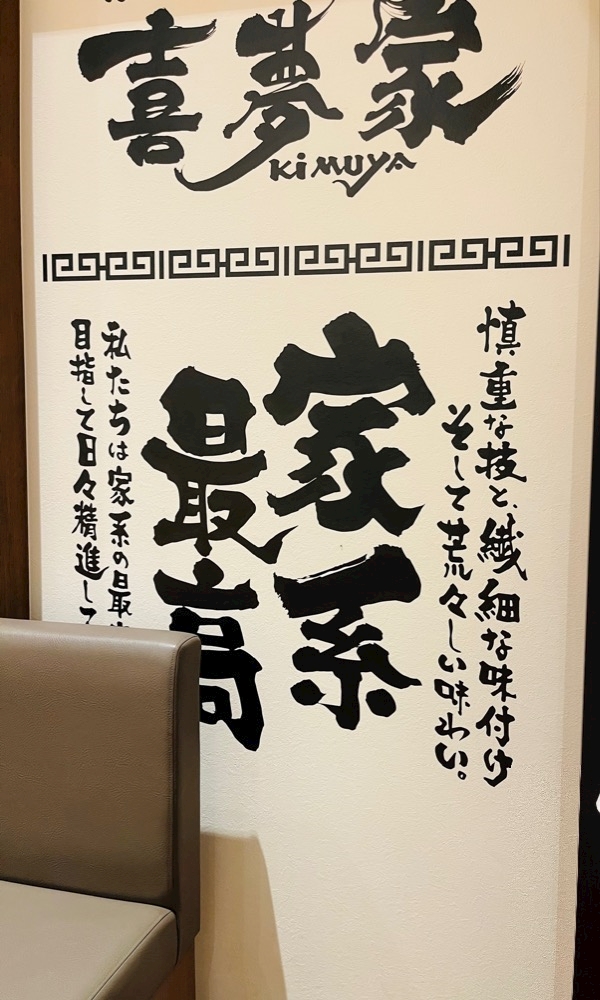 喜夢家
KiMUYA
慎重な技と、繊細な味付け
そして荒々しい味わい。
家系
最高
私たちは家系の最
目指して日々精進して